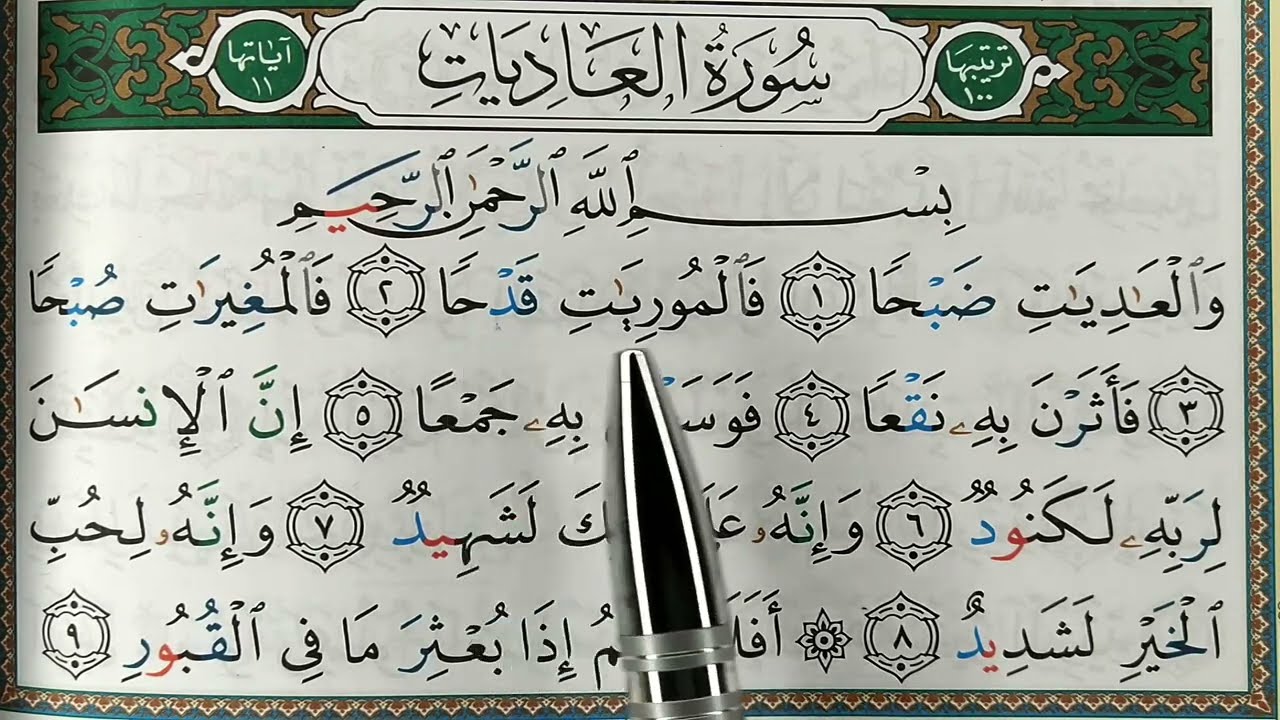 ترتيبها ١٠٠ سُورَةُ الْعَادِيَاتِ آياتها ١١
بِسْمِ ٱللَّهِ ٱلرَّحْمَٰنِ ٱلرَّحِيمِ
وَٱلْعَٰدِيَٰتِ ضَبْحًا ١ فَٱلْمُورِيَٰتِ قَدْحًا ٢ فَٱلْمُغِيرَٰتِ صُبْحًا
٣ فَأَثَرْنَ بِهِۦ نَقْعًا ٤ بِهِۦ جَمْعًا ٥ إِنَّ ٱلْإِنسَٰنَ
لِرَبِّهِۦ لَكَنُودٌ ٦ وَإِنَّهُۥ لَشَهِيدٌ ٧ وَإِنَّهُۥ لِحُبِّ
ٱلْخَيْرِ لَشَدِيدٌ ٨ ۞ إِذَا بُعْثِرَ مَا فِى ٱلْقُبُورِ ٩